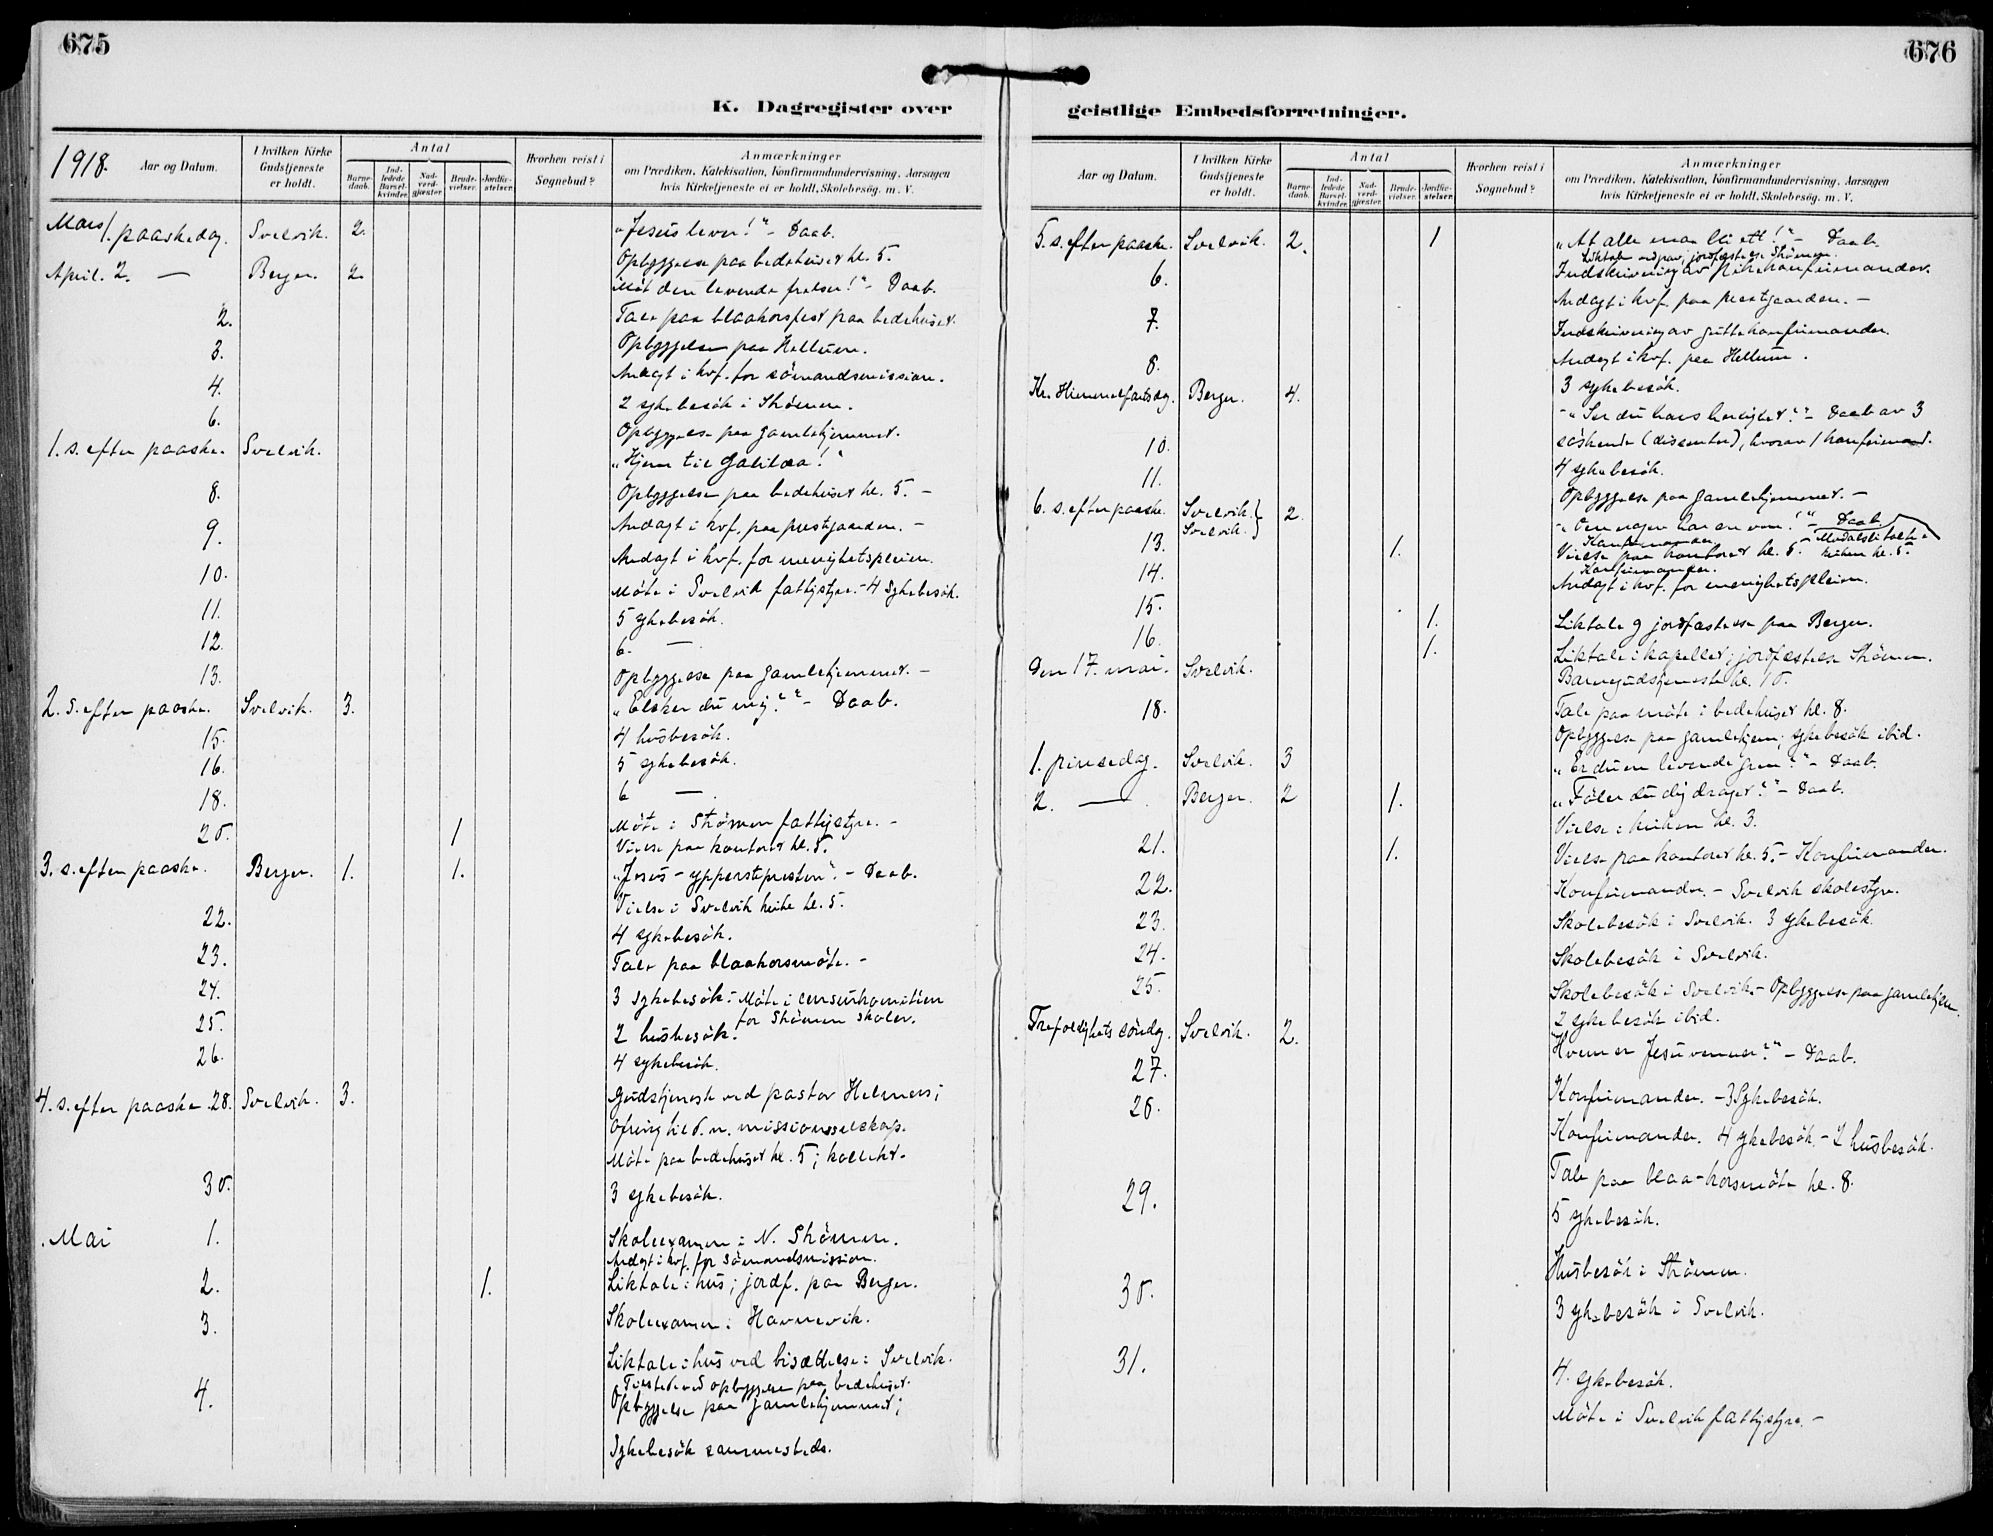 675
K. Dagregister over
1918. Aar og Datum.
I hvilken Kirke Gudstjeneste er holdt.
Antal
Barne-daab.
Ind-ledede Barsel-kvinder.
Nad-verd-gjæster.
Brude-vielser.
Jordfæ-stelser.
Hvorhen reist i Sognebud?
Anmærkninger
om Prædiken, Katekisation, Konfirmandundervisning, Aarsagen
hvis Kirketjeneste ei er holdt, Skolebesøg. m. V.
Mars 1. paaskedag. Svelvik. 2. „Jesus lever!“ - Daab.
Opbyggelse paa bedehuset kl. 5.
April. 2. — Berger. 2 Møt den levende frelser!“ - Daab.
2. Tale paa blaakorsfest paa bedehuset.
3. Opbyggelse paa Hellum.
Andagt i kvf. for sömandsmission.
4. 2 sykebesök i Strömm.
6. Opbyggelse paa gamlehjemmet.
1. s. efter paaske. Svelvik. „Hjem til Galilæa!“
8. Opbyggelse paa bedehuset kl. 5. -
9. Andagt i kvf. paa prestgaarden. -
Andagt i kvf. for menighetspleien.
10. Möte i Svelvik fattigstyre. - 4 Sykebesök.
11. 5 sykebesök.
12. 6. —
13. Opbyggelse paa gamlehjemmet. -
2. s. efter paaske. Svelvik. 3. „Elsker du mig?“ - Daab.
15. 4 husbesök.
16. 5 sykebesök.
18. 6 —
20. 1 Möte i Strömm fattigstyre. -
Vielse paa kontoret kl. 5.
3. s. efter paaske. Berger. 1. 1. „Jesus - ypperstepresten“. - Daab.
Vielse i Svelvik kirke kl. 5.
22. 4 sykebesök.
23. Tale paa blaakorsmöte. -
24. 3 sykebesök. - Möte i censurkomitéen
for Strömm skoler.
25. 2 husbesök.
26. 4 sykebesök.
4. s. efter paaske. 28. Svelvik. 3. Gudstjeneste ved pastor Helmers;
ofring til d. n. missionsselskap.
Möte paa bedehuset kl. 5; kollekt.
30. 3 sykebesök.
Mai 1. Skoleexamen i N. Strömm.
Andagt i kvf. for sömandsmission.
2. 1. Liktale i hus; jordf. paa Berger.
3. Skoleexamen i Havnevik.
Liktale i hus ved bisættelse i Svelvik.
Tilstede ved opbyggelse paa bedehuset.
4. Opbyggelse paa gamlehjemmet;
Sykebesök sammesteds.
676
geistlige Embedsforretninger.
Aar og Datum.
I hvilken Kirke Gudstjeneste er holdt.
Antal
Barne-daab.
Ind-ledede Barsel-kvinder.
Nad-verd-gjæster.
Brude-vielser.
Jordfæ-stelser.
Hvorhen reist i Sognebud?
Anmærkninger
om Prædiken, Katekisation, Konfirmandundervisning, Aarsagen
hvis Kirketjeneste ei er holdt, Skolebesøg. m. V.
5. s. efter paaske. Svelvik. 2. 1 „At alle maa bli ett!“ - Daab.
Liktale ved grav; jordfæstelse Strömm.
6. Indskrivning av pikekonfirmander.
Andagt i kvf. paa prestgaarden. -
7. Indskrivning av guttekonfirmander.
Andagt i kvf. paa Hellum.
8. 3 sykebesök.
Kr. Himmelfartsdag. Berger. 4. - „Ser du hans herlighet?“ - Daab av 3
söskende (dissenter), hvorav 1 konfirmand.
10. 4 sykebesök.
11. Opbyggelse paa gamlehjemmet. -
6. s. efter paaske. Svelvik. } 2. - „Om nogen har en ven!“ - Daab.
Svelvik. }
Konfirmander
13. 1. Vielse paa kontoret kl. 5. -
kirken kl. 5.
Konfirmander.
14. Andagt i kvf. for menighetspleien.
15. 1. Liktale og jordfæstelse paa Berger.
16. 1. Liktale i kapellet; jordfæstelse Strömm.
Den 17. mai. Svelvik. Barnegudstjeneste kl. 10.
Tale paa möte i bedehuset kl. 8.
18. Opbyggelse paa gamlehjem; sykebesök ibid.
1. pinsedag. Svelvik. 3 „Er du en levende gren?“ - Daab.
2. — Berger. 2 1. „Föler du dig draget?“ - Daab.
Vielse i kirken kl. 3.
21. 1. Vielse paa kontoret kl. 5. - Konfirmander.
22. Konfirmander. - Svelvik skolestyre.
23. Skolebesök i Svelvik. 3 sykebesök.
24. Skolebesök i Svelvik.
25. Skolebesök i Svelvik - Opbyggelse paa gamlehjem.
2 sykebesök ibid.
Trefoldighets söndag. Svelvik. 2. Hvem er Jesu venner?“ - Daab.
27. Konfirmander. - 3 Sykebesök.
28. Konfirmander. 4 sykebesök. - 2 husbesök.
Tale paa blaa-korsmöte kl. 8.
29. 5 sykebesök.
Husbesök i Strömm.
30. 3 sykebesök i Svelvik.
31. 4. sykebesök.
Möte i Svelvik fattigstyre. -